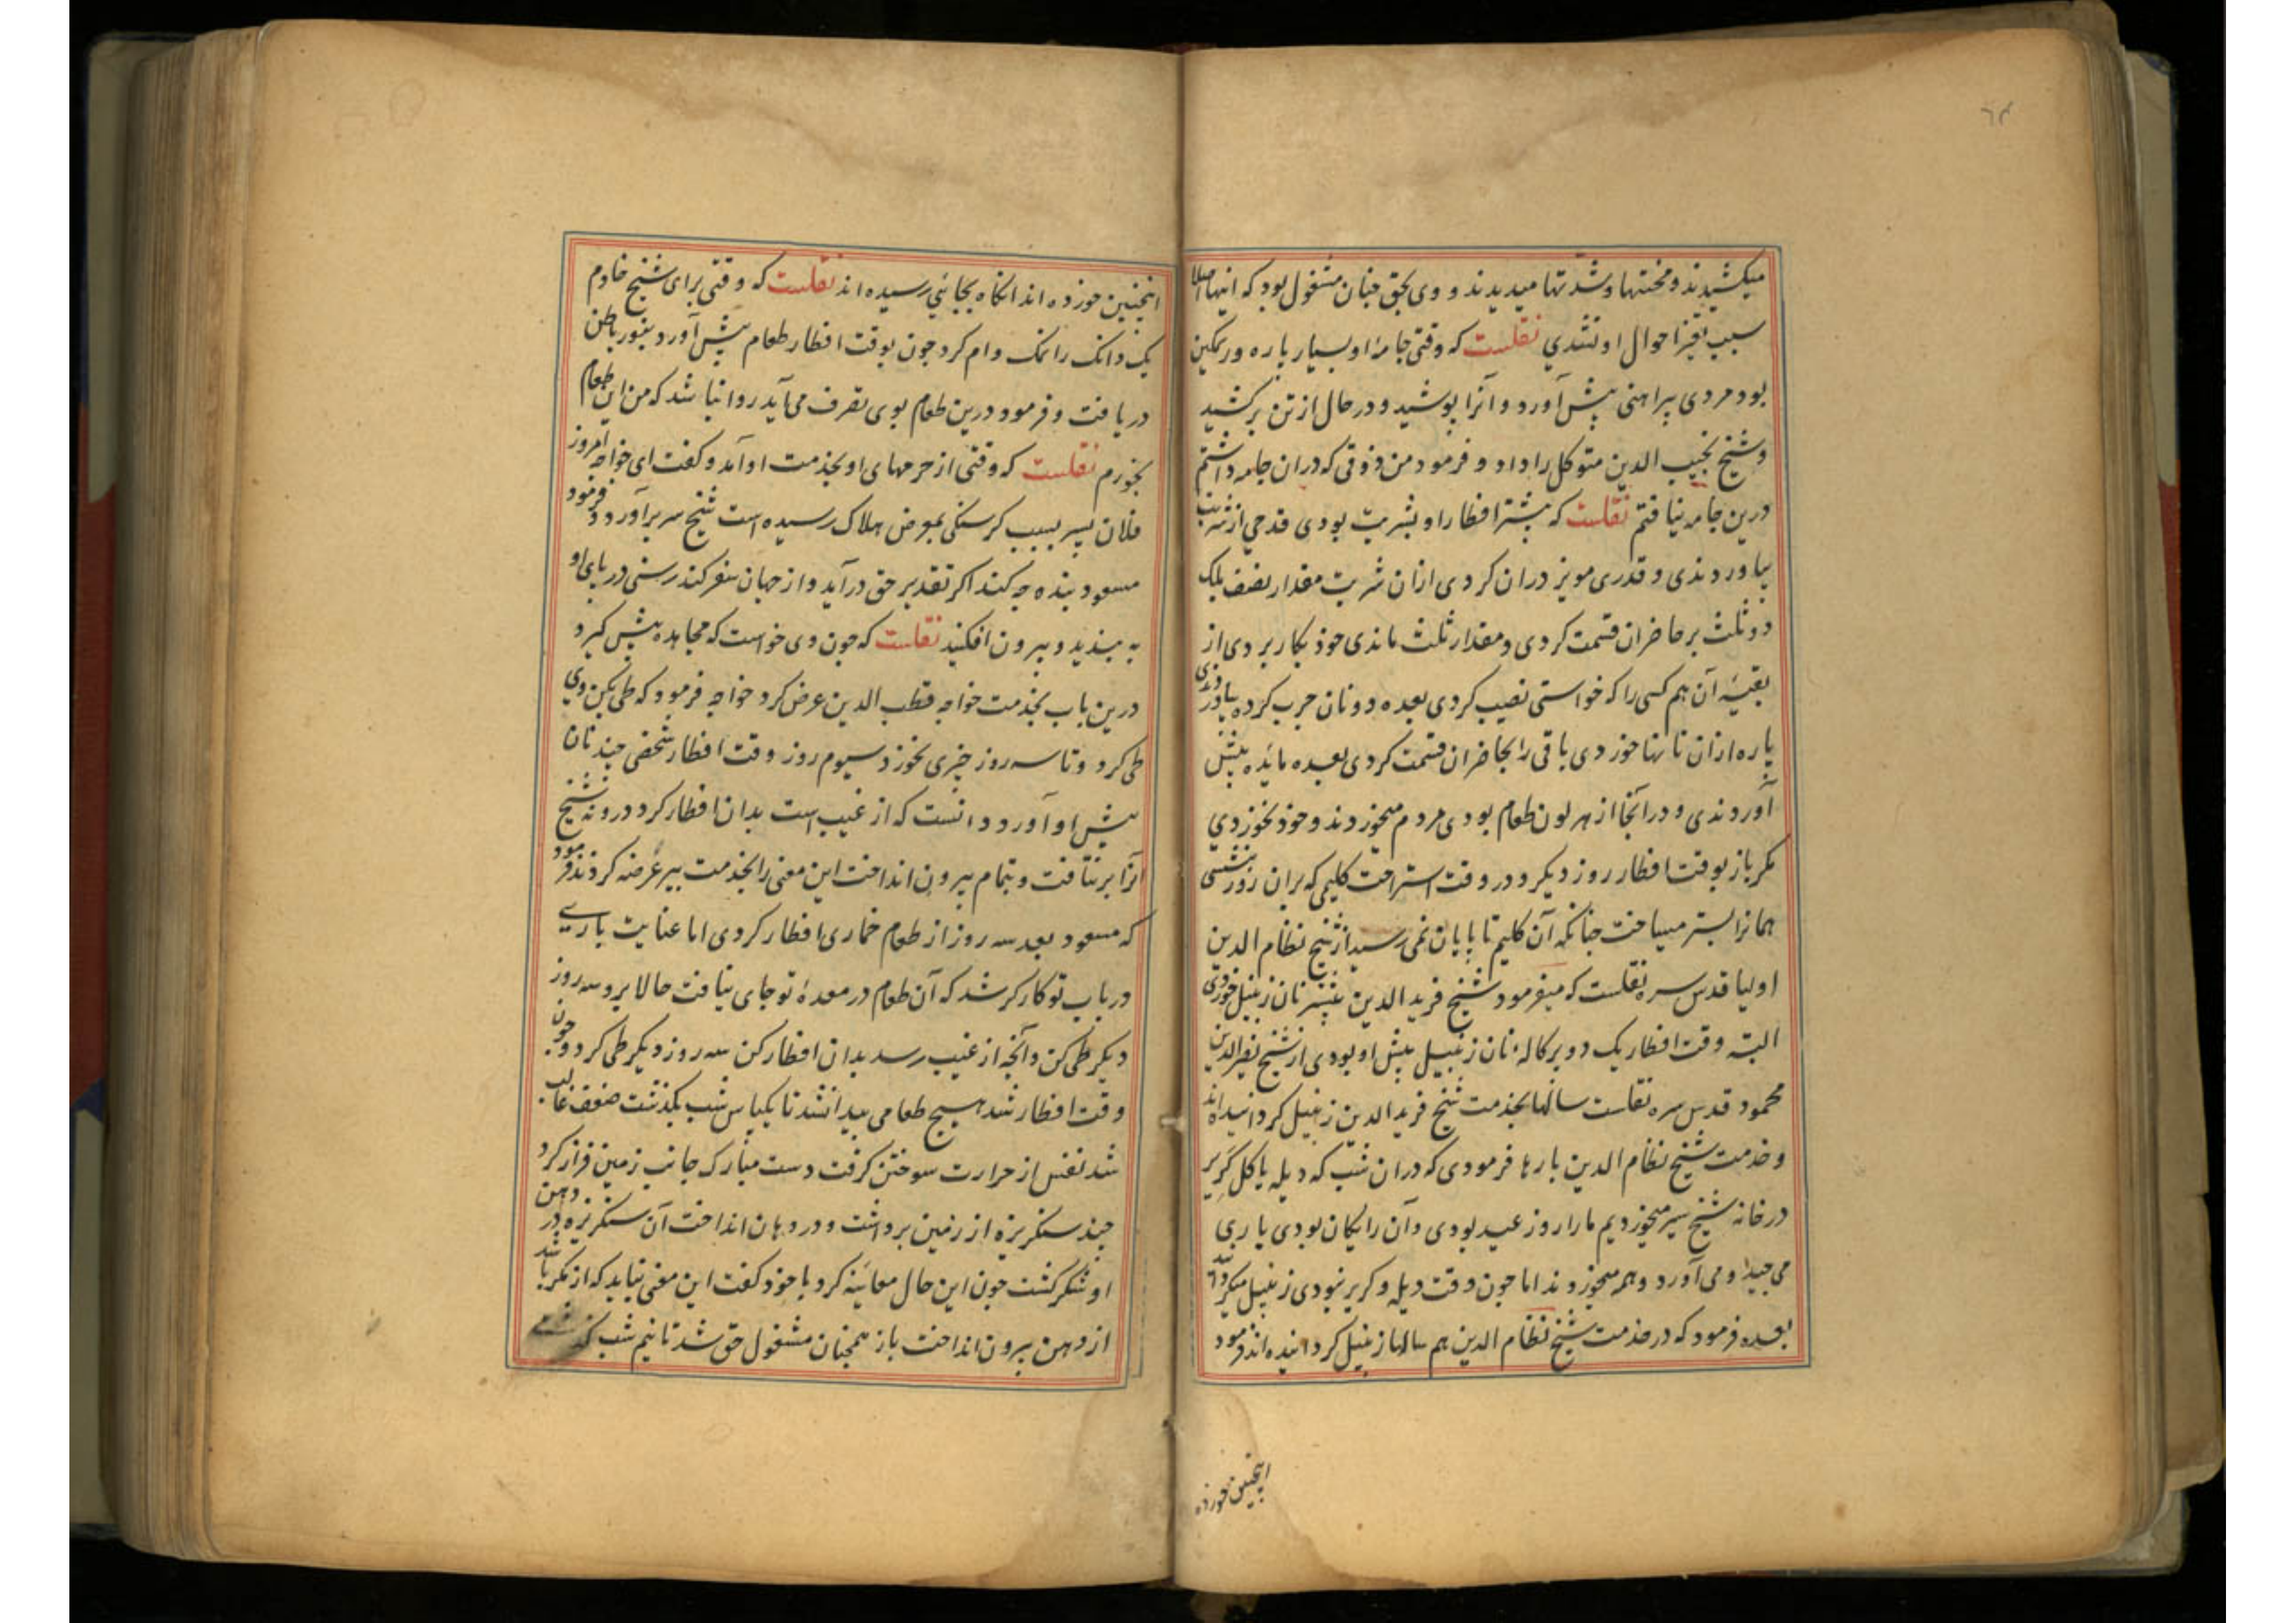 ٦٣
میکشیدند و محنتها و شدتها میدیدند و وی بحق چنان مشغول بود که اینها اصلا
سبب تغیر احوال او نشدی نقلست که وقتی جامهٔ او بسیار پاره و ریمگین
بود مردی پیراهنی پیش آورد و آنرا پوشید و در حال از تن برکشید
و شیخ نجیب الدین متوکل را داد و فرمود من ذوقی که دران جامه داشتم
درین جامه نیافتم نقلست که بیشتر افطار او بشربت بودی قدحی از شربت
بیاوردندی و قدری مویز دران کردی ازان شربت مقدار نصف بلک
دو ثلث بر حاضران قسمت کردی و مقدار ثلث ماندی خود بکار بردی از
بقیهٔ آن هم کسی را که خواستی نصیب کردی بعده دو نان چرب کرده بیاوردندی
پاره ازان نانها خوردی باقی را بحاضران قسمت کردی بعده مائده پیش
آوردندی و درآنجا از هر لون طعام بودی مردم میخوردند و خود نخوردی
مکر باز بوقت افطار روز دیکر و در وقت استراحت کلیمی که بران روز نشستی
همانرا بستر میساخت چنانکه آن کلیم تا بپایان نمی رسید از شیخ نظام الدین
اولیا قدس سره نقلست که میفرمود شیخ فرید الدین بیشتر نان زنبیل خوردی
البته وقت افطار یک دو پرکاله نان زنبیل پیش او بودی از شیخ نصیر الدین
محمود قدس سره نقلست سالها بخدمت شیخ فرید الدین زنبیل کردانیده اند
و خدمت شیخ نظام الدین بارها فرمودی که دران شب که دیله یا کل کریر
در خانه شیخ سیر میخوردیم ما را روز عید بودی و آن رایکان بودی یاری
می چیدا و می آورد و همه میخوردند اما چون وقت دیله و کریر نبودی زنبیل میکردند
بعده فرمود که در خدمت شیخ نظام الدین هم سالها زنبیل کردانیده اند فرمود
اینچنین خورده
اینچنین خورده اند آنکاه بجائی رسیده اند نقلست که وقتی برای شیخ خادم
یک دانک را نمک وام کرد چون بوقت افطار طعام پیش آورد بنور باطن
دریافت و فرمود درین طعام بوی تصرف می آید روا نباشد که من این طعام
بخورم نقلست که وقتی از حرمهای او بخدمت او آمد و کفت ای خواجه امروز
فلان پسر بسبب کرسنکی بمعرض هلاک رسیده است شیخ سر برآورد و فرمود
مسعود بنده چه کند اکر تقدیر حق درآید و از جهان سفر کند رسنی در پای او
به بندید و بیرون افکنید نقلست که چون وی خواست که مجاهده پیش کیرد
درین باب بخدمت خواجه قطب الدین عرض کرد خواجه فرمود که طی بکن وی
طی کرد و تا سه روز چیزی نخورد سیوم روز وقت افطار شخصی چند نان
پیش او آورد و دانست که از غیب است بدان افطار کرد درونه شیخ
آنرا برنتافت و بتمام بیرون انداخت این معنی را بخدمت پیر عرضه کردند فرمود
که مسعود بعد سه روز از طعام خماری افطار کردی اما عنایت باری
در باب تو کارکر شد که آن طعام در معدهٔ تو جای نیافت حالا برو سه روز
دیکر طی کن و آنچه از غیب رسد بدان افطار کن سه روز دیکر طی کرد و چون
وقت افطار شد هیچ طعامی پیدا نشد تا یکپاس شب بکذشت ضعف غالب
شد نفس از حرارت سوختن کرفت دست مبارک جانب زمین فراز کرد
چند سنکریزه از زمین برداشت و در دهان انداخت آن سنکریزه در دهن
او شکر کشت چون این حال معاینه کرد با خود کفت این معنی نباید که از مکر باشد
از دهن بیرون انداخت باز همچنان مشغول حق شد تا نیم شب